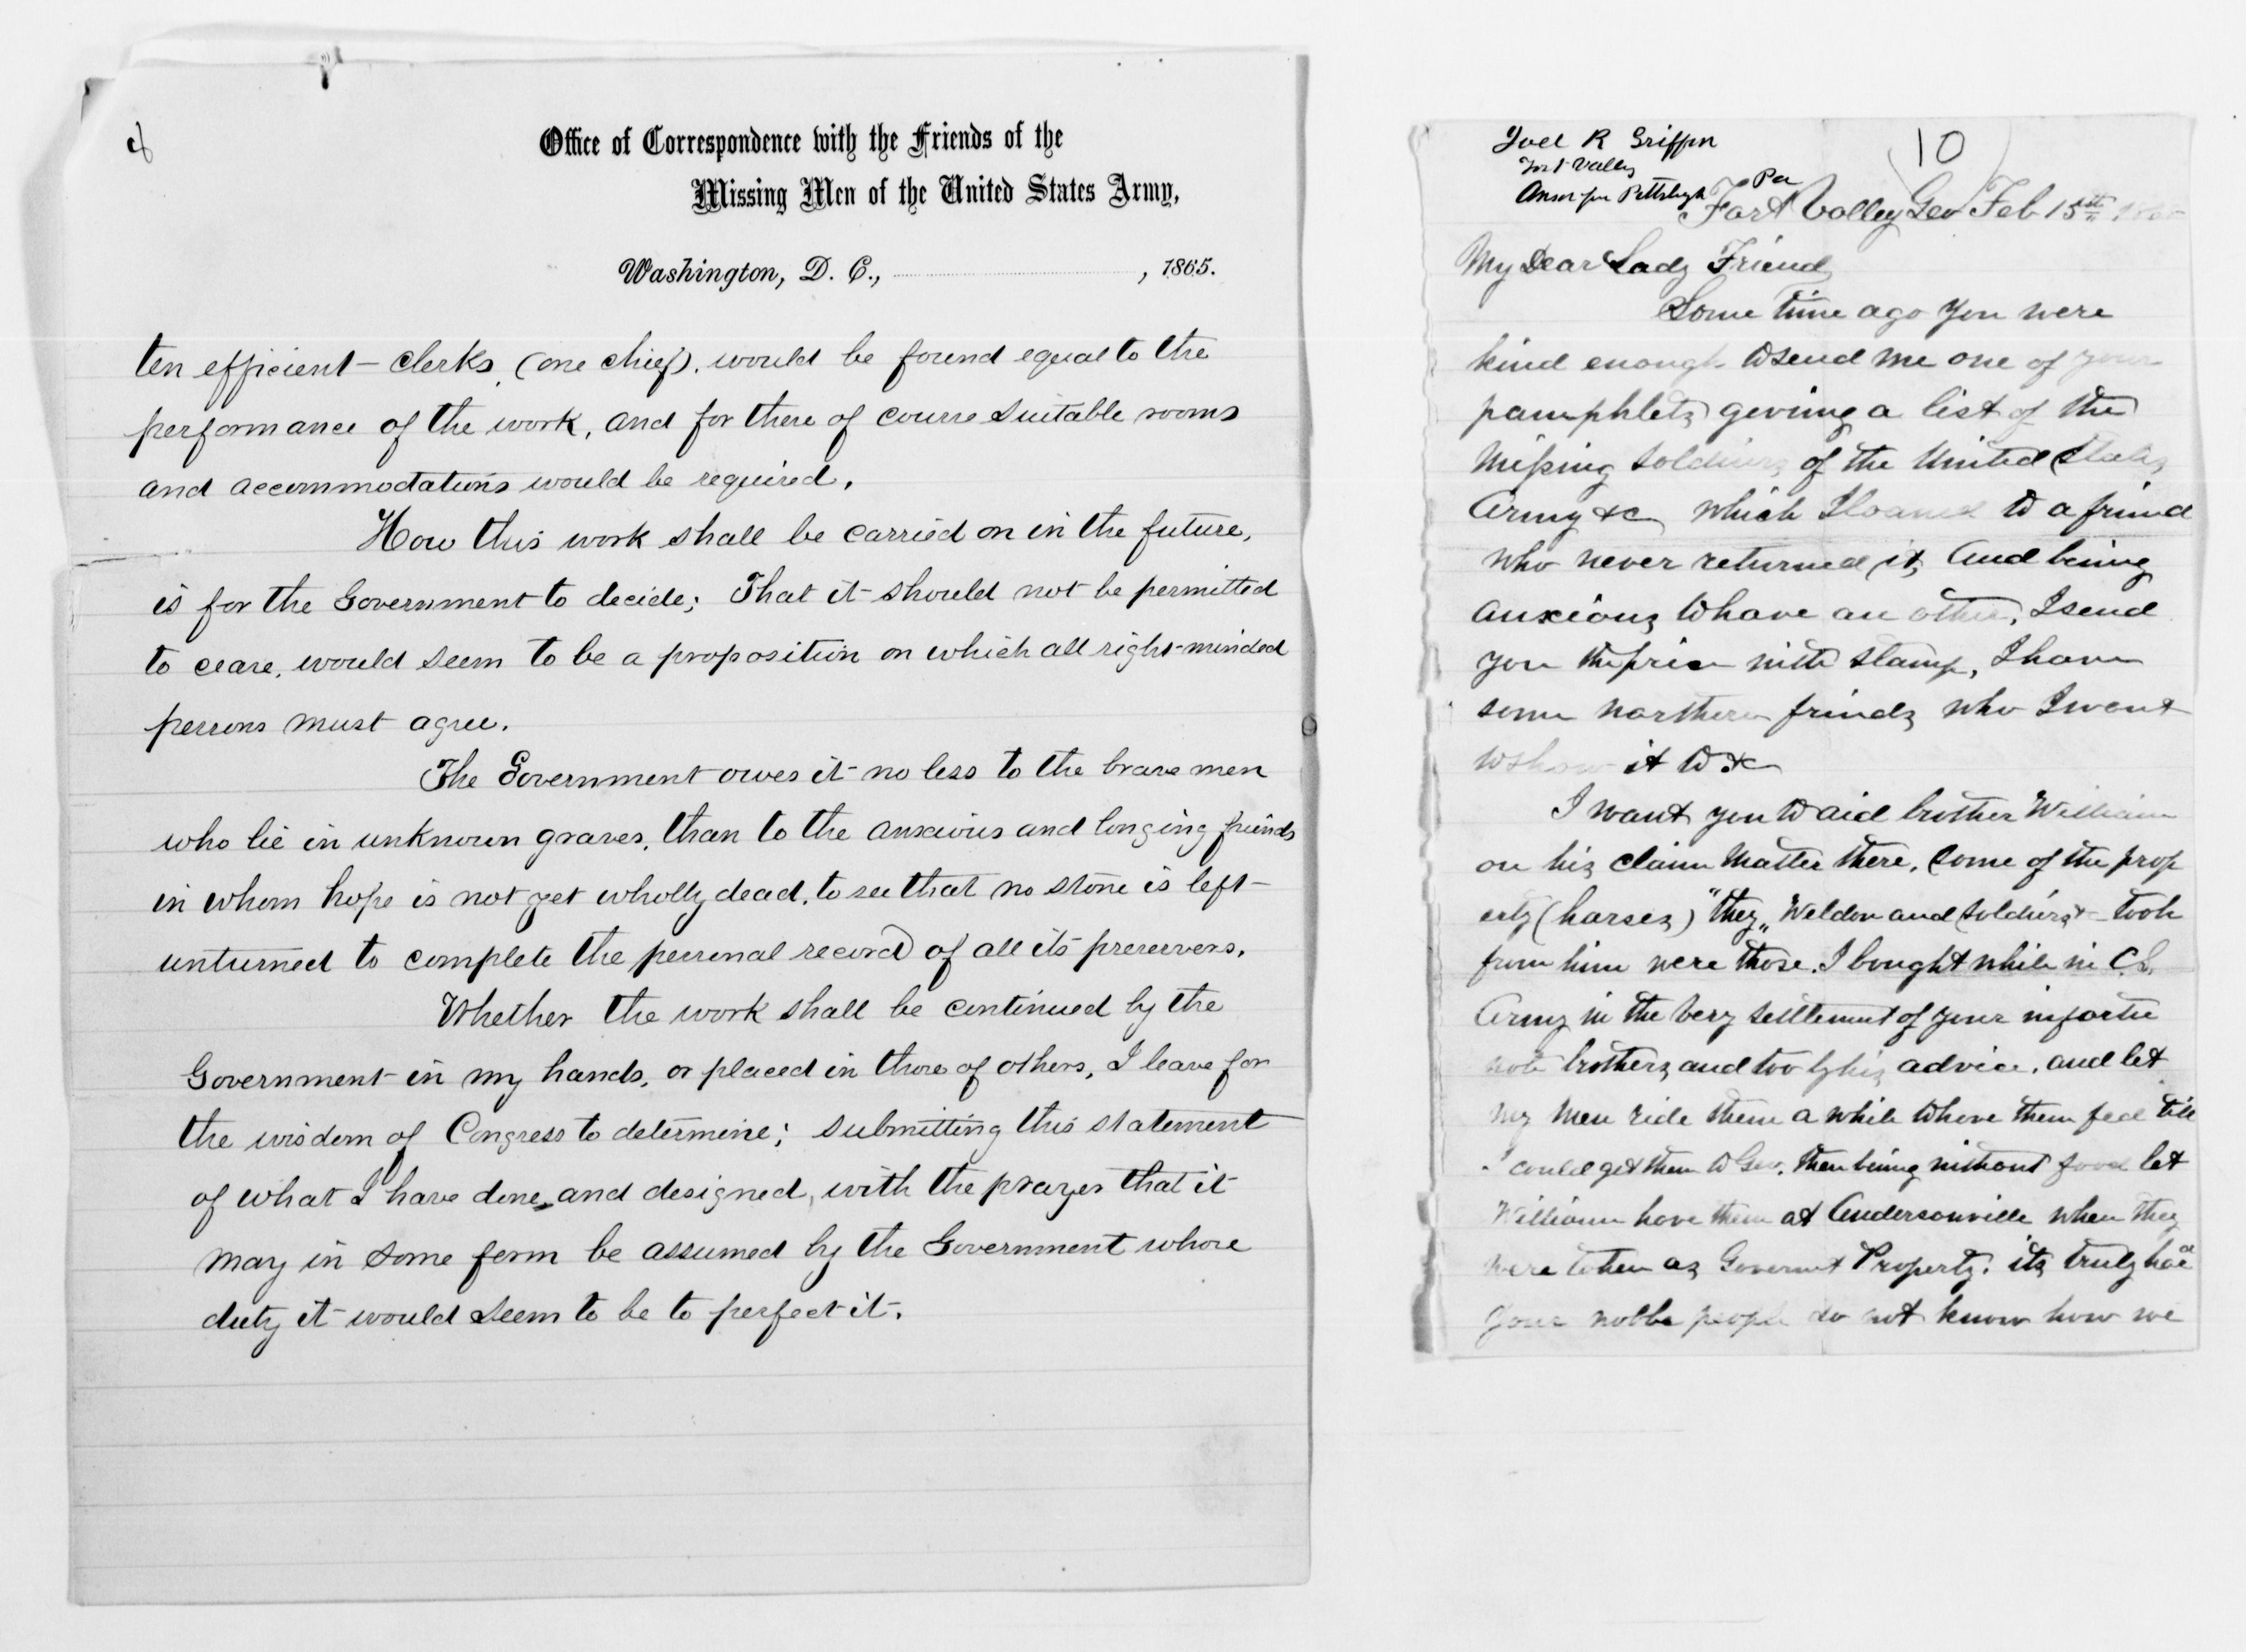 Office of Correspondence with the Friends of the
Missing Men of the United States Army,
Washington, D. C., , 1865.
ten efficient clerks, (one chief), would be found equal to the
performance of the work, and for these of course suitable rooms
and accommodations would be required.
How this work shall be carried on in the future,
is for the Government to decide; That it should not be permitted
to cease, would seem to be a proposition on which all right-minded
persons must agree.
The Government owes it no less to the brave men
who lie in unknown graves, than to the anxious and longing friends
in whom hope is not yet wholly dead, to see that no stone is left
unturned to complete the personal record of all its preservers.
Whether the work shall be continued by the
Government in my hands, or placed in those of others, I leave for
the wisdom of Congress to determine; submitting this statement
of what I have done, and designed, with the prayer that it
may in some form be assumed by the Government whose
duty it would seem to be to perfect it.
Joel R Griffin
Fort Valley
Answr fm Pittsburgh Pa
10
Fort Valley Geo Feb 15th
My Dear Lady Friend
Some time ago you were
kind enough to send me one of your
pamphlets giveing a list of the
Missing Soldiers of the United States
Army &c which I loaned to a friend
who never returned it, And being
anxious to have an other, I send
you the price with stamp, I have
some northern frinds who I want
to show it to &c
I want you to aid brother William
on his claim matter there, Some of the prop
erty (horses) "they" Weldon and Soldiers took
from him were those I bought while in C.S.
Army in the very settlement of your infortu
nate brothers and too by his advice, and let
my men ride them a while to have them fed till
I could get them to Geo, then being without food let
William have them at Andersonville when they
were taken as Governmt Property. its truly had
your noble people do not know how we